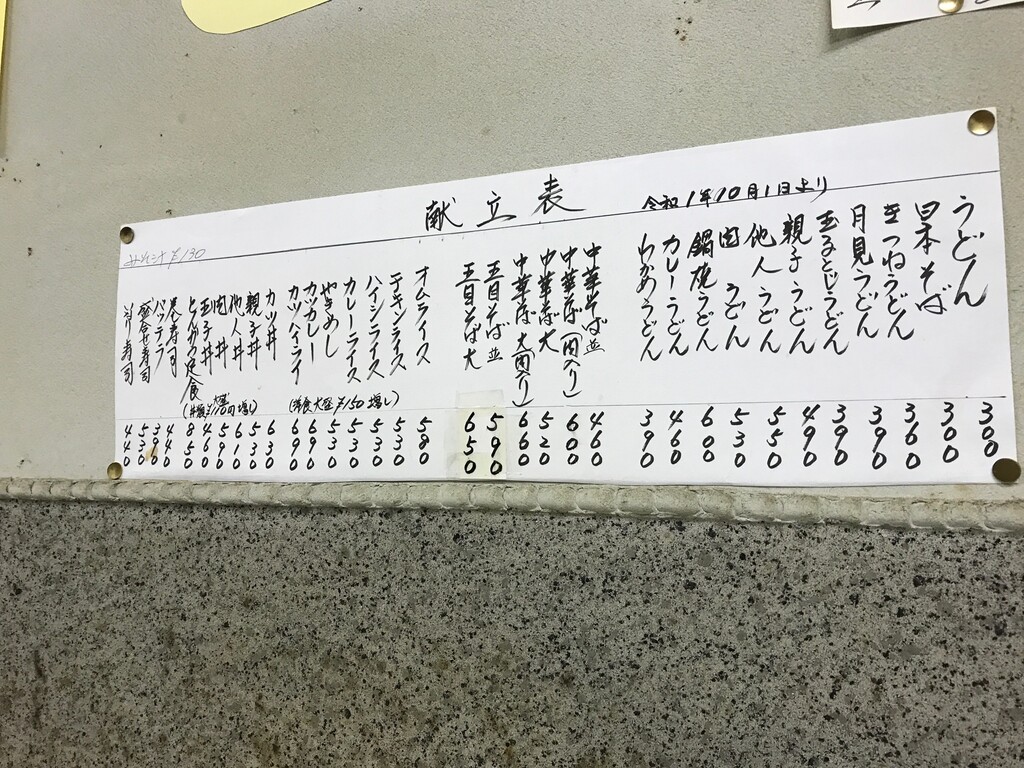 献立表
令和1年10月1日より
うどん 300
日本そば 300
きつねうどん 360
月見うどん 390
玉子とじうどん 390
親子うどん 490
他人うどん 550
肉うどん 530
鍋焼うどん 600
カレーうどん 460
わかめうどん 390
中華そば並 460
中華そば(肉入り) 600
中華そば大 520
中華そば大(肉入り) 660
五目そば並 590
五目そば大 650
オムライス 580
チキンライス 530
ハイシライス 530
カレーライス 530
やきめし 530
カツカレー 690
カツハイライ 690
(洋食大盛¥150増し)
カツ丼 630
親子丼 530
他人丼 610
肉丼 590
玉子丼 460
とんかつ定食 850
(丼類大盛¥110円増し)
巻寿司 440
バッテラ 390
盛合せ寿司 530
いなり寿司 440
みそ汁 ¥130